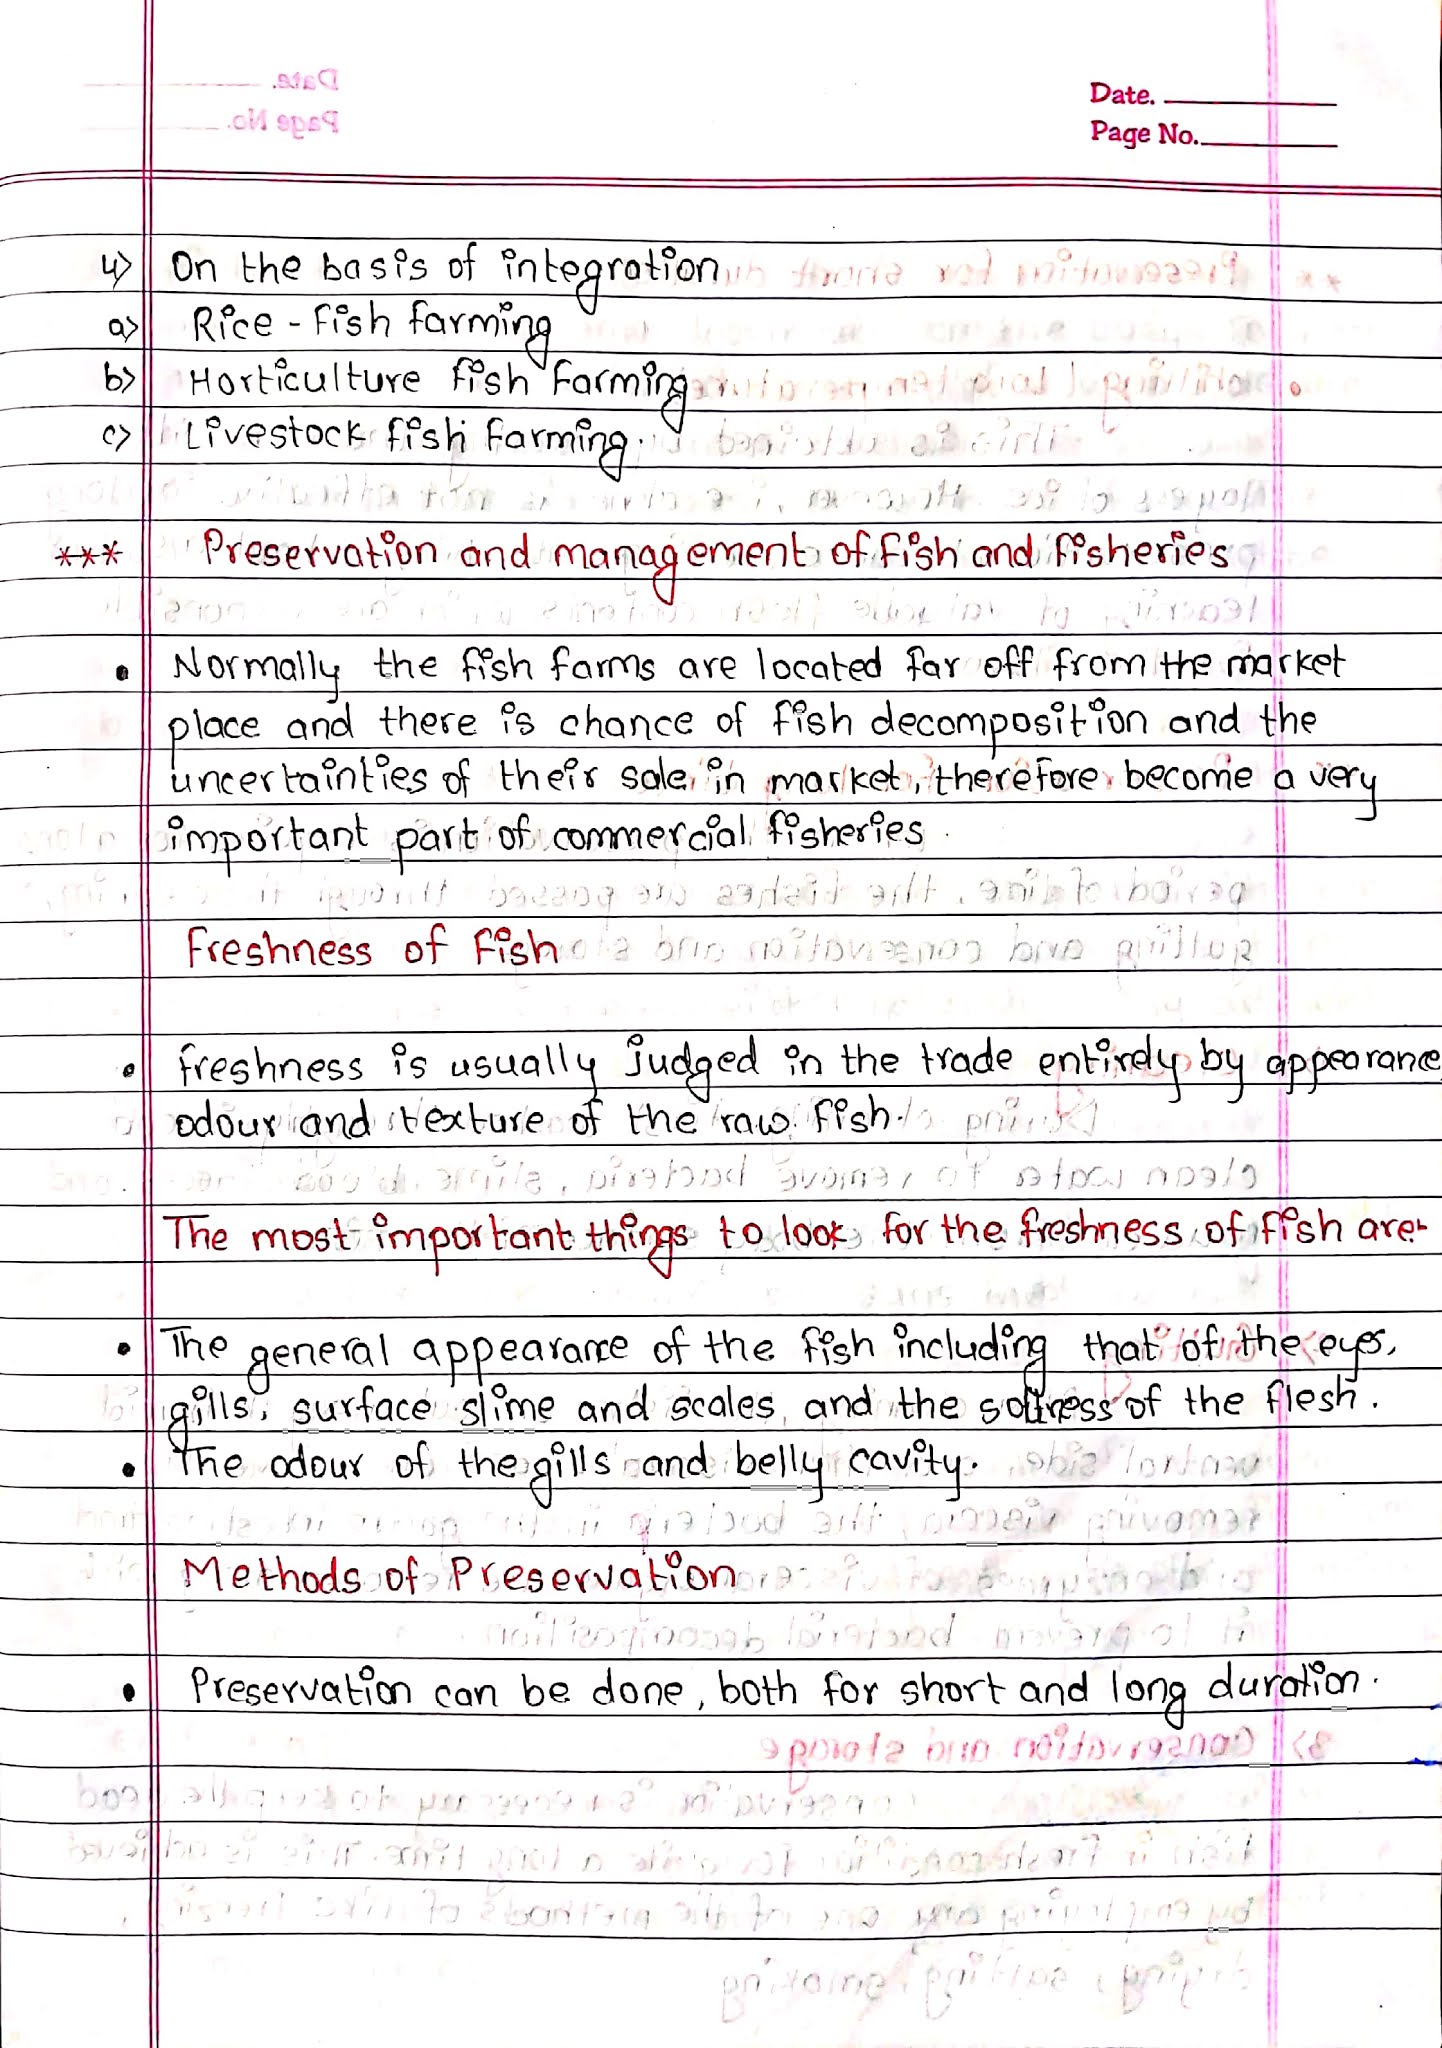 Date.
Page No.
4> On the basis of integration
a> Rice - Fish farming
b> Horticulture fish farming
c> Livestock fish farming.
*** Preservation and management of fish and fisheries
• Normally the fish farms are located far off from the market
place and there is chance of fish decomposition and the
uncertainties of their sale in market, therefore become a very
important part of commercial fisheries.
Freshness of Fish
• freshness is usually judged in the trade entirely by appearance
odour and texture of the raw fish.
The most important things to look for the freshness of fish are-
• The general appearance of the fish including that of the eyes,
gills, surface slime and scales, and the softness of the flesh.
• The odour of the gills and belly cavity.
Methods of Preservation
• Preservation can be done, both for short and long duration.